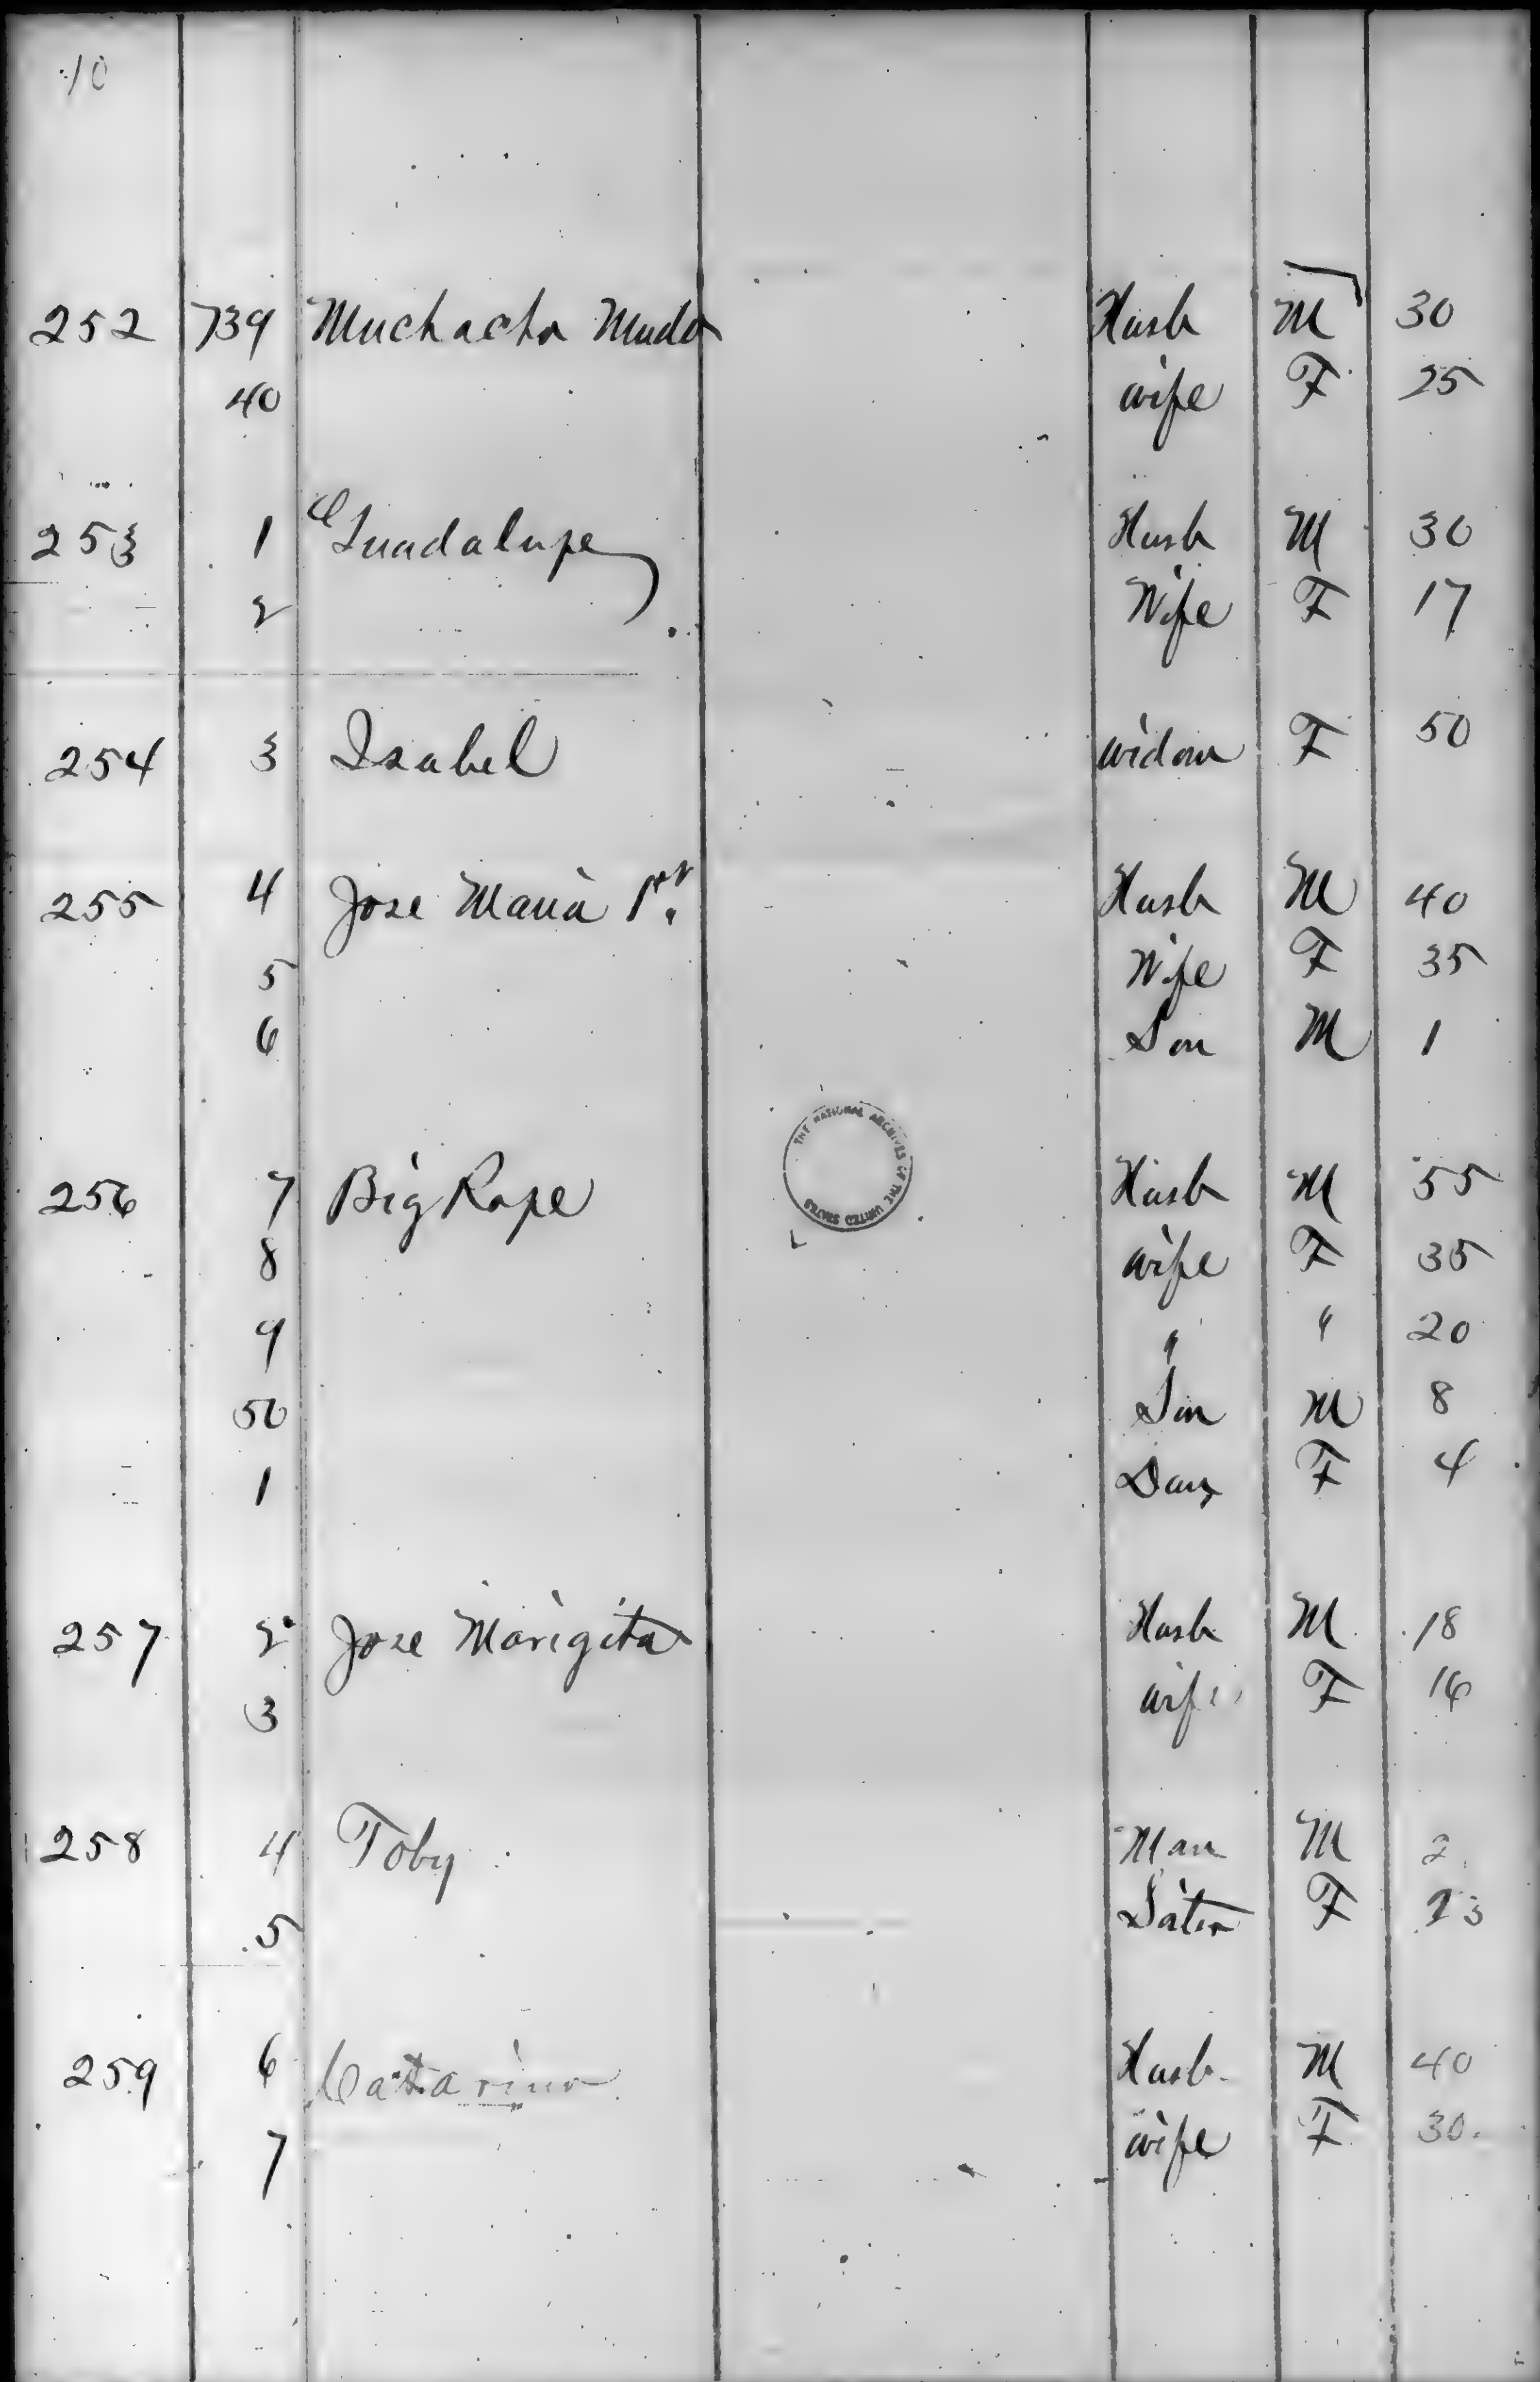 10
252 739 Muchacho Mudo Husb M 30
40 wife F 25
253 1 Guadalupe Husb M 30
2 Wife F 17
254 3 Isabel widow F 50
255 4 Jose Maria 1st Husb M 40
5 Wife F 35
6 Son M 1
THE NATIONAL ARCHIVES OF THE UNITED STATES
256 7 Big Rope Husb M 55
8 wife F 35
9 " " 20
50 Son M 8
1 Dau F 4
257 2 Jose Marigita Husb M 18
3 wife F 16
258 4 Toby Man M
5 Sister F
259 6 Catarino Husb M 40
7 wife F 30